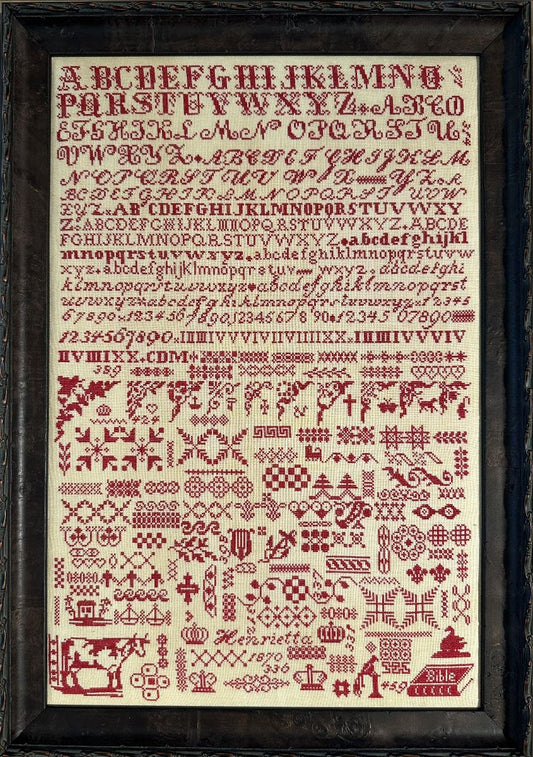 ABCDEFGHIJKLMNO
PQRSTUVWXYZ ABCD
EFGHIKLMN OPQRSTU
VWXYZ ABCDEFGHIJKLM
NOPQRSTUVWX YZ
BCDEFGHIJKLMNOPQRSTUVW
XYZ ABCDEFGHIJKLMNOPQRSTUVWXY
Z ABCDEFGHIJKLMNOPQRSTUVWXYZ ABCDE
FGHIJKLMNOPQRSTUVWXYZ abcdefghijkl
mnopqrstuvwxyz abcdefghijklmnopqrstuvw
xyz abcdefghijklmnopqrstuv wxyz abcdefghi
jklmnopqrstuvwxyz abcdefghijklmnopqrst
uvwxyz abcdefghijklmnopqrstuvwxyz 12345
67890 1234567890 1234567890 1234567890
1234567890 IIIIIIIVVVIVIIVIIIIXX IIIIIIIVVVIV
IIVIIIIXX.CDM
389
424
Henrietta
1870
336
459
Bible